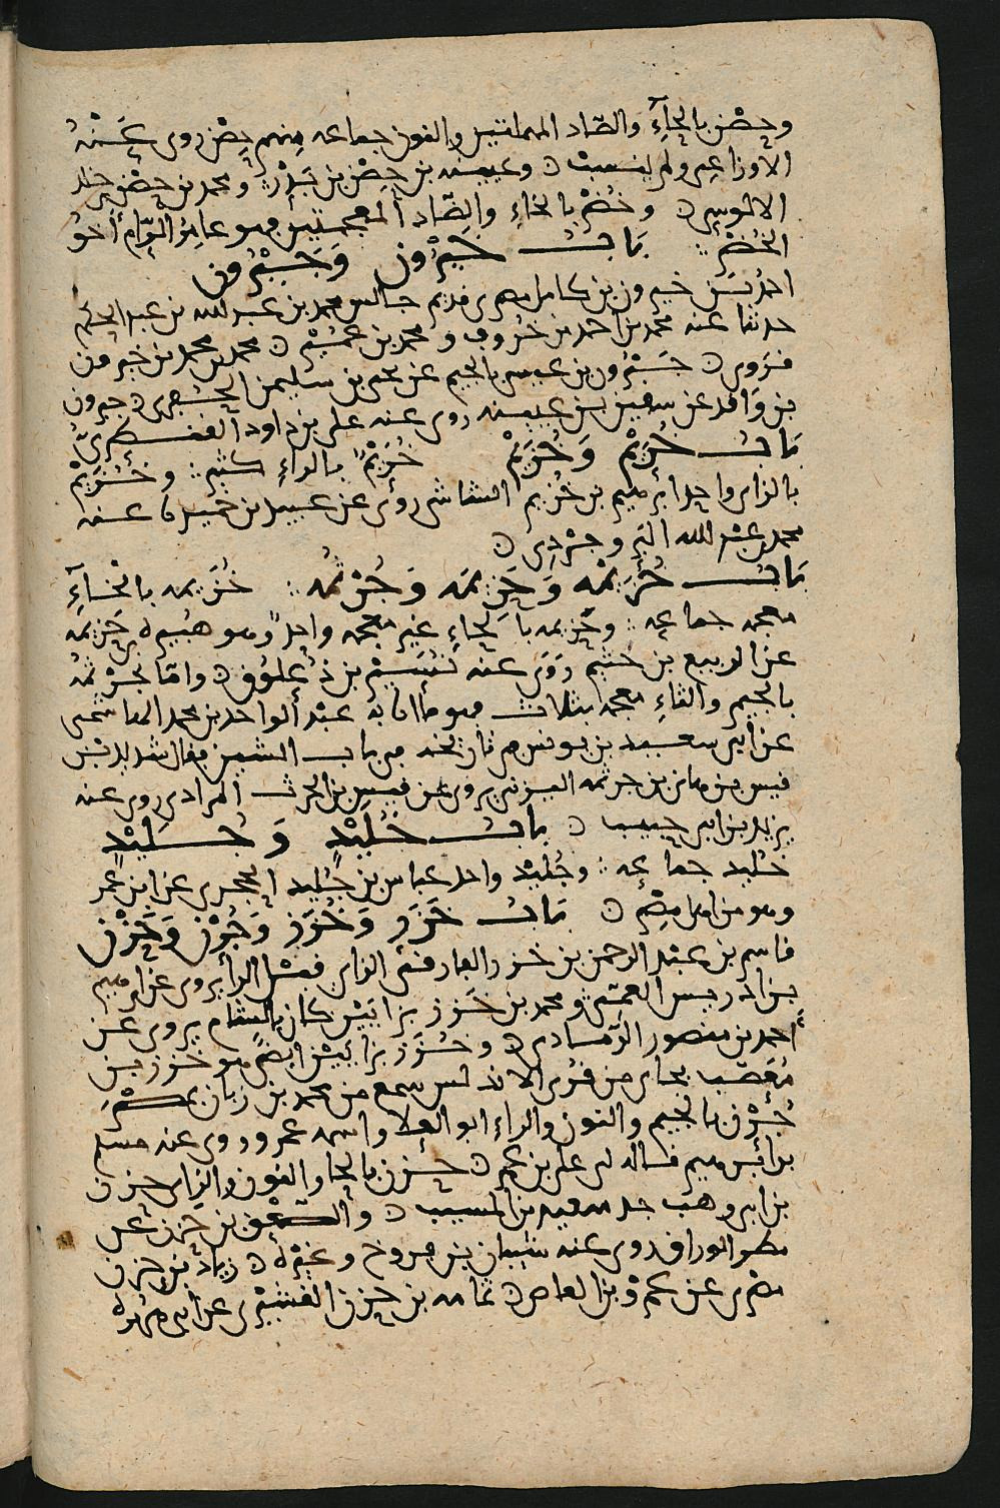 وحِصْن بالحآءِ والصّاد المهملتين والنون جماعه منهم حِصْن روى عَنْهُ
الاوزاعي ولم ينسب ۞ وعيينه بن حِصْن بن بَدْر ومحمد بن حِصْن بن خلد
الالوسي ۞ وخُضْر بالخاءِ والضّاد المعجمتين فهو عامِرُ الرّام أخو
الخُضْر بَابُ خَيْرُون وَجَبْرُون
احمد بن خيرون بن كامل مصرى قديم جالس محمد بن عبد الله بن عبد الحكم
حدثنا عنه محمد بن احمد بن خروف و محمد بن محمد بن خيرون
قروى ۞ جَبْرُون بن عيسى بالجيم عن يحيى بن سليمن الجُفرى ۞ جبرون
بن واقد عن سفين بن عيينه روى عنه على بن داود القنطرىّ
بَابُ خُرَيْم وَخُزَيْم خُرَيْم بالراءِ كثير وخُزَيْم
بالزاى واحد ابرهيم بن خُزيم الشاشى روى عن عبد بن حُميد نا عنه
محمد بن عبد الله البروجردى ۞
بَابُ خُزَيْمَه وَحَزِيمَه وَجُرْثمه خُزيمه بالخآءِ
معجمه جماعه وحَزيمه بالحاءِ غير معجمه واحد وهو هبيره بن حَزيمه
عن الربيع بن خثيم رَوَى عنه نُسَير بن ذُعلُوق ۞ وامّا جُرْثُمه
بالجيم والثاءِ معجمه بثلاث فهو ما انا به عبْد الواحد بن محمد الهاشمى
عن أبى سعيد بن يونس فى تاريخه فى باب الشين فقال شديد بن
قيس بن هانى بن جرثمه اليزنى يروى عن قيس بن الحرث المرادى روى عنه
يزيد بن ابى حبيب ۞ بابُ خُلَيْدٍ وَجُلَيْدٍ
خليد جماعه وجُليد واحد عباس بن جُليد الحجرى عن ابن عُمر
وهو من اهل مصْر ۞ بَابُ خَزَر وَخُزَز وَجُرْن وَحَزْن
قاسم بن عبْد الرحمن بن خزر الفارقى الزاى قبْل الرا يروى عن ابرهيم
بن ادريس العمّى ومحمد بن خَزز بزاييْن كان بالشام يروى عن
أحمد بن منصور الرّمادى ۞ وخُزَز بزاييْن ايضًا هو خزز بن
مُعَصّب بجاى من قرى الاندلس سمع من محمد بن زبان بمصْر
جُرْن بالجيم والنون والراءِ ابو العلا واسمه عمرو روى عنه مسلم
بن ابرهيم قاله لى على بن عمر ۞ حزن بالحا والنون والزاى حزن
بن ابى وهب جد سعيد بن المسيب ۞ والصعْق بن حَزن عن
مطر الوراق روى عنه شيبان بن فروخ وغيْره ۞ زياد بن حزن
مصْرى عن عَمْرو بن العاص ۞ ثمامه بن حزن القشيْرى عن أبى هريْرة